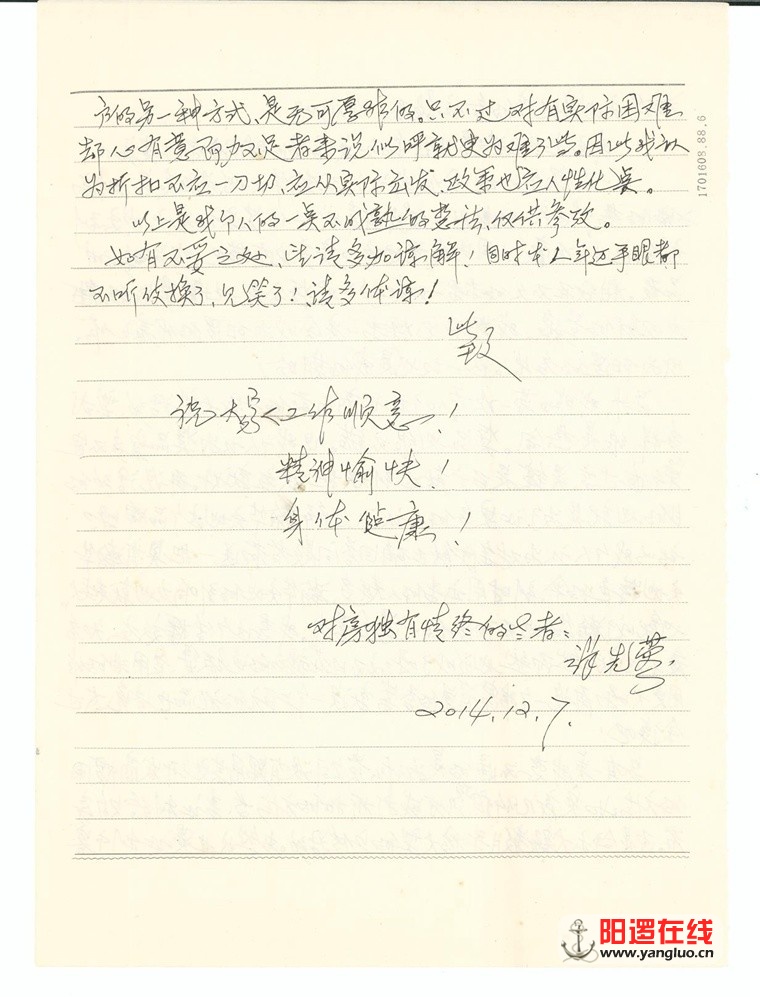 方的另一种方式,是无可厚非的。只不过对有实际困难
却心有意而力不足者来说似呼就更为难了些。因此我认
为折扣不应一刀切,应从实际出发,政策也应人性化点。
以上是我个人的一点不成熟的想法,仅供参改。
如有不妥之处,请多加谅解!同时本人年迈手眼都
不听使换了,见笑了!请多体谅!
此致
祝大家工作顺意!
精神愉快!
身体健康!
对房独有情终的老者:
先
2014.12.7.
1701608.88.6
阳逻在线
www.yangluo.cn